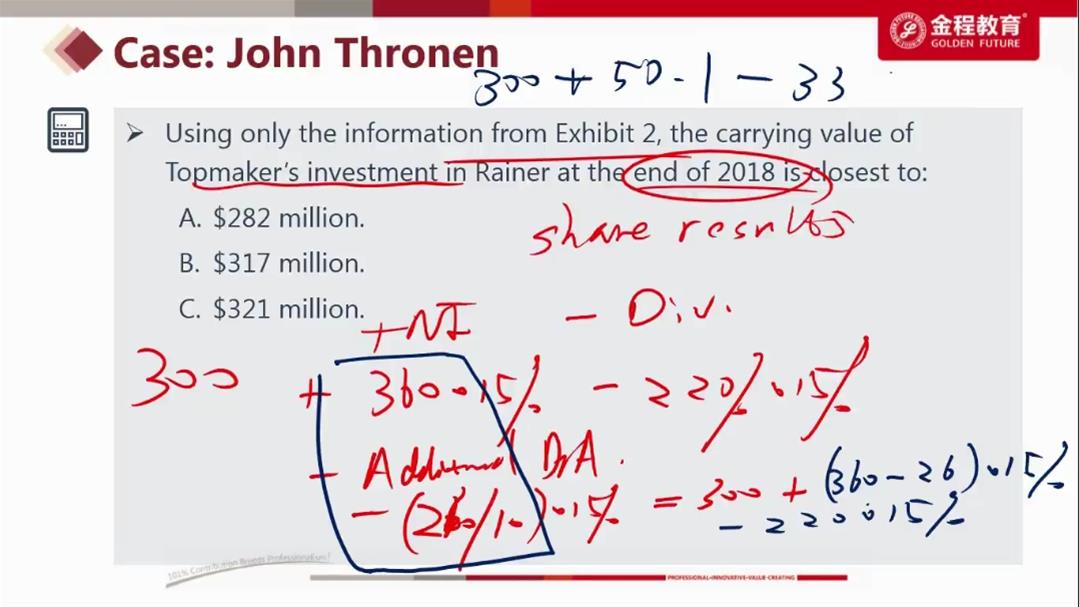 金程教育
GOLDEN FUTURE
Case: John Thronen
300 + 50.1 - 33
➢ Using only the information from Exhibit 2, the carrying value of
Topmaker's investment in Rainer at the end of 2018 is closest to:
A. $282 million.
share results
B. $317 million.
C. $321 million.
+NI - Div.
300 + 360·15% - 220·15%
- Additional D/A.
- (260/10)·15% = 300 + (360-26)·15%
- 220·15%
101% Contribution Breeds Professionalism!
PROFESSIONAL·INNOVATIVE·VALUE-CREATING